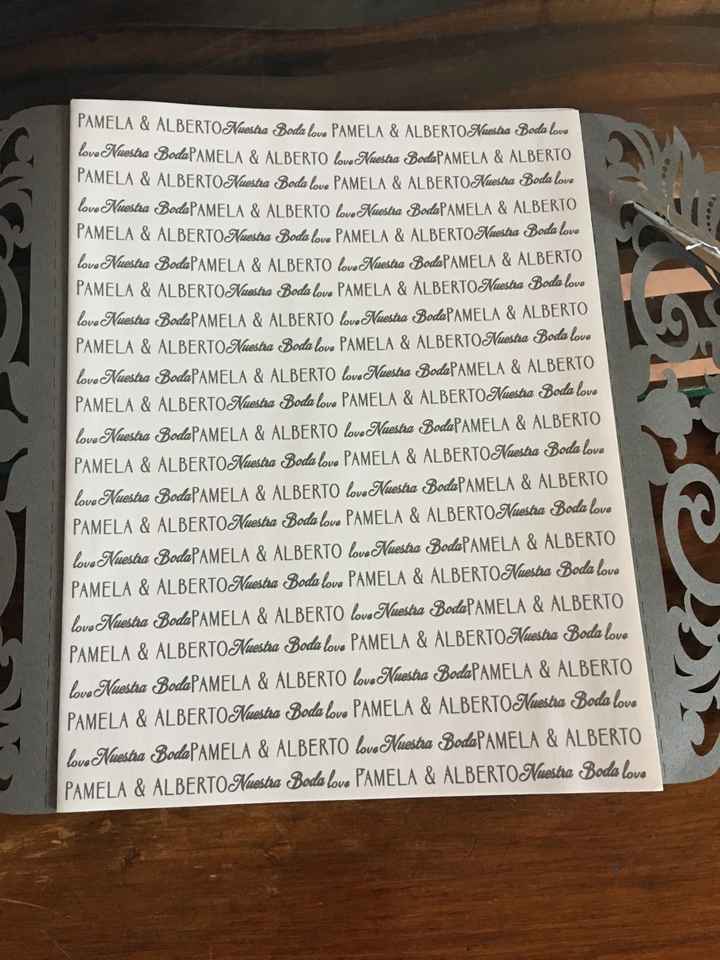 PAMELA & ALBERTO Nuestra Boda love PAMELA & ALBERTO Nuestra Boda love
love Nuestra Boda PAMELA & ALBERTO love Nuestra Boda PAMELA & ALBERTO
PAMELA & ALBERTO Nuestra Boda love PAMELA & ALBERTO Nuestra Boda love
love Nuestra Boda PAMELA & ALBERTO love Nuestra Boda PAMELA & ALBERTO
PAMELA & ALBERTO Nuestra Boda love PAMELA & ALBERTO Nuestra Boda love
love Nuestra Boda PAMELA & ALBERTO love Nuestra Boda PAMELA & ALBERTO
PAMELA & ALBERTO Nuestra Boda love PAMELA & ALBERTO Nuestra Boda love
love Nuestra Boda PAMELA & ALBERTO love Nuestra Boda PAMELA & ALBERTO
PAMELA & ALBERTO Nuestra Boda love PAMELA & ALBERTO Nuestra Boda love
love Nuestra Boda PAMELA & ALBERTO love Nuestra Boda PAMELA & ALBERTO
PAMELA & ALBERTO Nuestra Boda love PAMELA & ALBERTO Nuestra Boda love
love Nuestra Boda PAMELA & ALBERTO love Nuestra Boda PAMELA & ALBERTO
PAMELA & ALBERTO Nuestra Boda love PAMELA & ALBERTO Nuestra Boda love
love Nuestra Boda PAMELA & ALBERTO love Nuestra Boda PAMELA & ALBERTO
PAMELA & ALBERTO Nuestra Boda love PAMELA & ALBERTO Nuestra Boda love
love Nuestra Boda PAMELA & ALBERTO love Nuestra Boda PAMELA & ALBERTO
PAMELA & ALBERTO Nuestra Boda love PAMELA & ALBERTO Nuestra Boda love
love Nuestra Boda PAMELA & ALBERTO love Nuestra Boda PAMELA & ALBERTO
PAMELA & ALBERTO Nuestra Boda love PAMELA & ALBERTO Nuestra Boda love
love Nuestra Boda PAMELA & ALBERTO love Nuestra Boda PAMELA & ALBERTO
PAMELA & ALBERTO Nuestra Boda love PAMELA & ALBERTO Nuestra Boda love
love Nuestra Boda PAMELA & ALBERTO love Nuestra Boda PAMELA & ALBERTO
PAMELA & ALBERTO Nuestra Boda love PAMELA & ALBERTO Nuestra Boda love